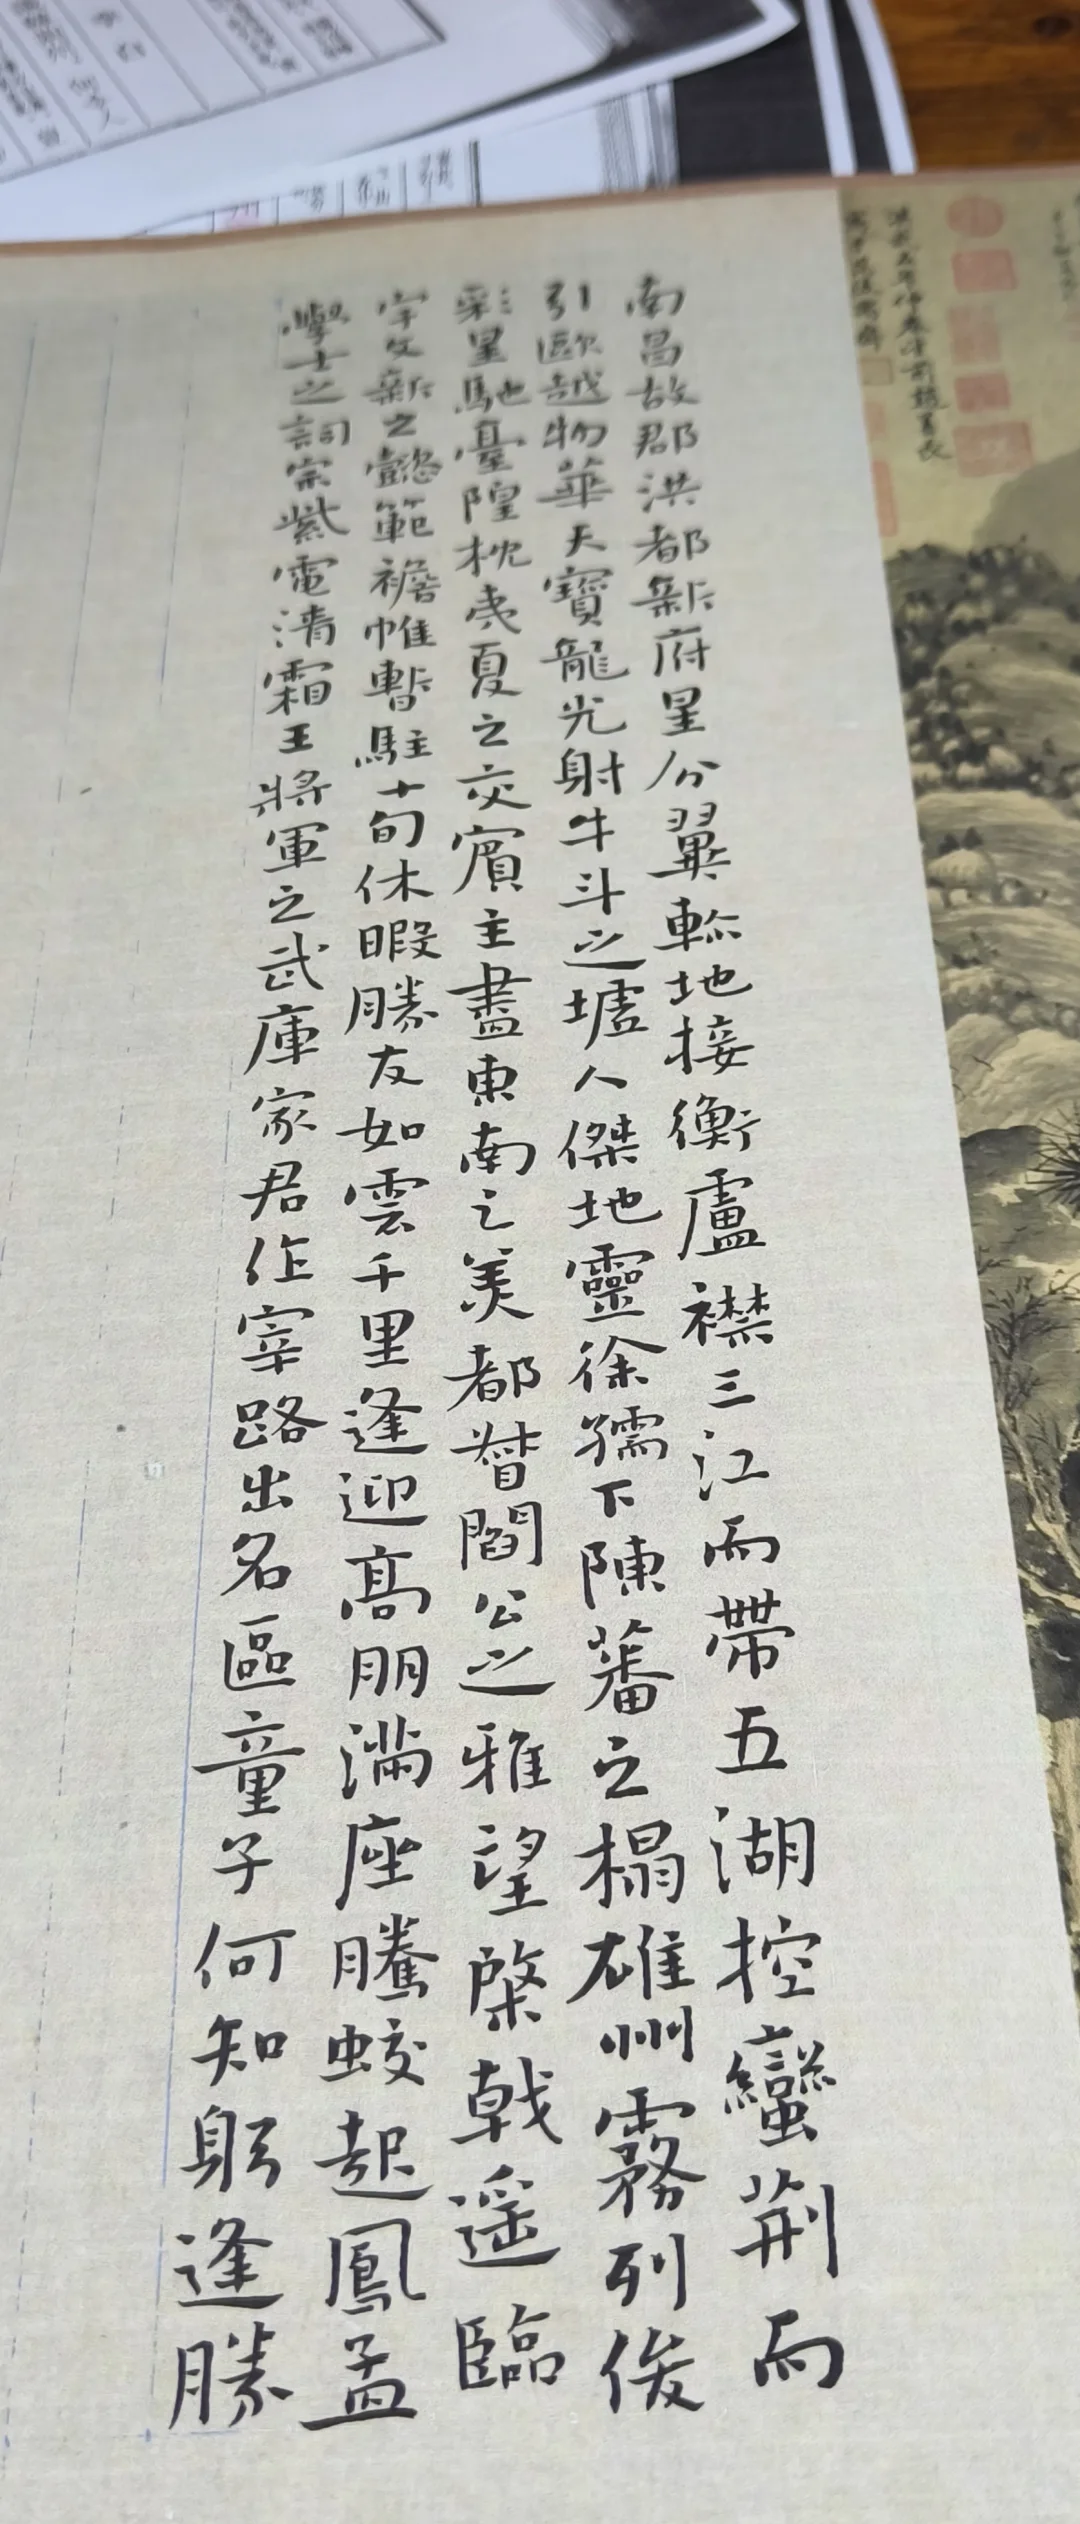 南昌故郡洪都新府星分翼軫地接衡廬襟三江而帶五湖控蠻荊而
引歐越物華天寶龍光射牛斗之墟人傑地靈徐孺下陳蕃之榻雄州霧列俊
彩星馳臺隍枕夷夏之交賓主盡東南之美都督閻公之雅望棨戟遥臨
宇文新之懿範襜帷暫駐十旬休暇勝友如雲千里逢迎高朋滿座騰蛟起鳳孟
學士之詞宗紫電清霜王將軍之武庫家君作宰路出名區童子何知躬逢勝